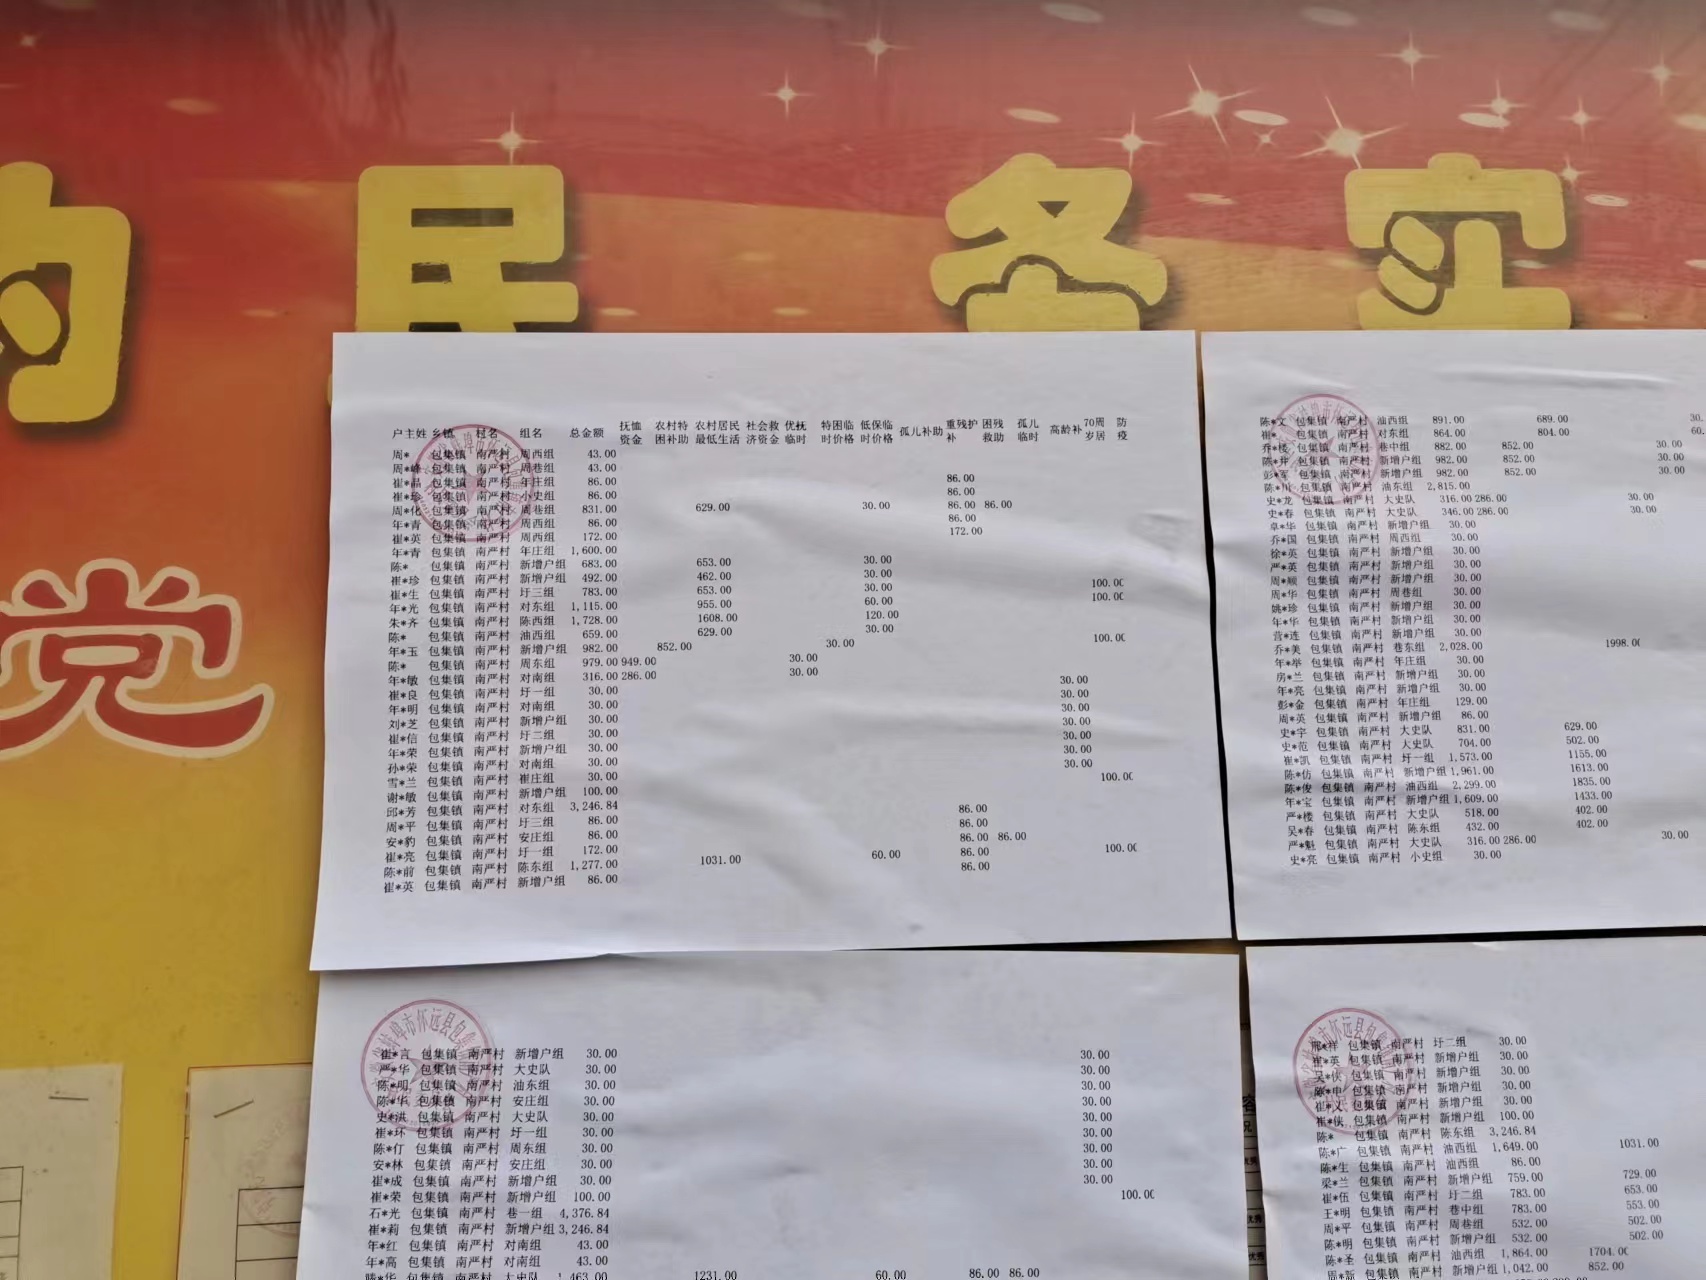 的 民 务 实
党
户主姓 乡镇 村名 组名 总金额 抚恤资金 农村特困补助 农村居民最低生活 社会救济资金 优抚临时 特困临时价格 低保临时价格 孤儿补助 重残护补 困残救助 孤儿临时 高龄补 70周岁居 防疫
周* 包集镇 南严村 周西组 43.00
周*峰 包集镇 南严村 周巷组 43.00
崔*晶 包集镇 南严村 年庄组 86.00 86.00
崔*珍 包集镇 南严村 小史组 86.00 86.00
周*化 包集镇 南严村 周巷组 831.00 629.00 30.00 86.00 86.00
年*青 包集镇 南严村 周西组 86.00 86.00
崔*英 包集镇 南严村 周西组 172.00 172.00
年*青 包集镇 南严村 年庄组 1,600.00
陈* 包集镇 南严村 新增户组 683.00 653.00 30.00
崔*珍 包集镇 南严村 新增户组 492.00 462.00 30.00
崔*生 包集镇 南严村 圩三组 783.00 653.00 30.00 100.00
年*光 包集镇 南严村 对东组 1,115.00 955.00 60.00 100.00
朱*齐 包集镇 南严村 陈西组 1,728.00 1608.00 120.00
陈* 包集镇 南严村 油西组 659.00 629.00 30.00
年*玉 包集镇 南严村 新增户组 982.00 852.00 30.00 100.00
陈* 包集镇 南严村 周东组 979.00 949.00 30.00
年*敏 包集镇 南严村 对南组 316.00 286.00 30.00
崔*良 包集镇 南严村 圩一组 30.00 30.00
年*明 包集镇 南严村 对南组 30.00 30.00
刘*芝 包集镇 南严村 新增户组 30.00 30.00
崔*信 包集镇 南严村 圩二组 30.00 30.00
年*荣 包集镇 南严村 新增户组 30.00 30.00
孙*荣 包集镇 南严村 对南组 30.00 30.00
雪*兰 包集镇 南严村 崔庄组 30.00 30.00
谢*敏 包集镇 南严村 新增户组 100.00 100.00
邱*芳 包集镇 南严村 对东组 3,246.84
周*平 包集镇 南严村 圩三组 86.00 86.00
安*豹 包集镇 南严村 安庄组 86.00 86.00
崔*亮 包集镇 南严村 圩一组 172.00 86.00 86.00
陈*前 包集镇 南严村 陈东组 1,277.00 1031.00 60.00 86.00 100.00
崔*英 包集镇 南严村 新增户组 86.00 86.00
陈*文 包集镇 南严村 油西组 891.00 689.00 30.
崔* 包集镇 南严村 对东组 864.00 804.00 60.
乔*楼 包集镇 南严村 巷中组 882.00 852.00 30.00
陈*井 包集镇 南严村 新增户组 982.00 852.00 30.00
彭*军 包集镇 南严村 新增户组 982.00 852.00 30.00
陈*川 包集镇 南严村 油东组 2,815.00
史*龙 包集镇 南严村 大史队 316.00 286.00 30.00
史*春 包集镇 南严村 大史队 346.00 286.00 30.00
*华 包集镇 南严村 新增户组 30.00
乔*国 包集镇 南严村 周西组 30.00
徐*英 包集镇 南严村 新增户组 30.00
严*英 包集镇 南严村 新增户组 30.00
周*顺 包集镇 南严村 新增户组 30.00
周*华 包集镇 南严村 周巷组 30.00
姚*珍 包集镇 南严村 新增户组 30.00
年*华 包集镇 南严村 新增户组 30.00
营*连 包集镇 南严村 新增户组 30.00
乔*美 包集镇 南严村 巷东组 2,028.00 1998.00
年*举 包集镇 南严村 年庄组 30.00
房*兰 包集镇 南严村 新增户组 30.00
年*亮 包集镇 南严村 新增户组 30.00
彭*金 包集镇 南严村 年庄组 129.00
周*英 包集镇 南严村 新增户组 86.00
史*宇 包集镇 南严村 大史队 831.00 629.00
史*范 包集镇 南严村 大史队 704.00 502.00
崔*凯 包集镇 南严村 圩一组 1,573.00 1155.00
陈*仿 包集镇 南严村 新增户组 1,961.00 1613.00
陈*俊 包集镇 南严村 油西组 2,299.00 1835.00
年*宝 包集镇 南严村 新增户组 1,609.00 1433.00
严*楼 包集镇 南严村 大史队 518.00 402.00
吴*春 包集镇 南严村 陈东组 432.00 402.00
严*魁 包集镇 南严村 大史队 316.00 286.00 30.00
史*亮 包集镇 南严村 小史组 30.00
崔*言 包集镇 南严村 新增户组 30.00 30.00
严*华 包集镇 南严村 大史队 30.00 30.00
陈*明 包集镇 南严村 油东组 30.00 30.00
陈*华 包集镇 南严村 安庄组 30.00 30.00
史*洪 包集镇 南严村 大史队 30.00 30.00
崔*环 包集镇 南严村 圩一组 30.00 30.00
陈*仃 包集镇 南严村 周东组 30.00 30.00
安*林 包集镇 南严村 安庄组 30.00 30.00
崔*成 包集镇 南严村 新增户组 30.00 30.00
崔*荣 包集镇 南严村 新增户组 100.00 100.00
石*光 包集镇 南严村 巷一组 4,376.84
崔*莉 包集镇 南严村 新增户组 3,246.84
年*红 包集镇 南严村 对南组 43.00
年*高 包集镇 南严村 对南组 43.00
*华 包集镇 南严村 大史队 1,463.00 1231.00 60.00 86.00 86.00
邢*祥 包集镇 南严村 圩二组 30.00
崔*英 包集镇 南严村 新增户组 30.00
吴*侠 包集镇 南严村 新增户组 30.00
陈*申 包集镇 南严村 新增户组 30.00
崔*义 包集镇 南严村 新增户组 30.00
崔*侠 包集镇 南严村 新增户组 100.00
陈* 包集镇 南严村 陈东组 3,246.84
陈*广 包集镇 南严村 油西组 1,649.00 1031.00
陈*生 包集镇 南严村 油西组 86.00
梁*兰 包集镇 南严村 新增户组 759.00 729.00
崔*伍 包集镇 南严村 圩二组 783.00 653.00
王*明 包集镇 南严村 巷中组 783.00 553.00
周*平 包集镇 南严村 周巷组 532.00 502.00
陈*明 包集镇 南严村 新增户组 532.00 502.00
陈*圣 包集镇 南严村 油西组 1,864.00 1704.00
周*新 包集镇 南严村 新增户组 1,042.00 852.00